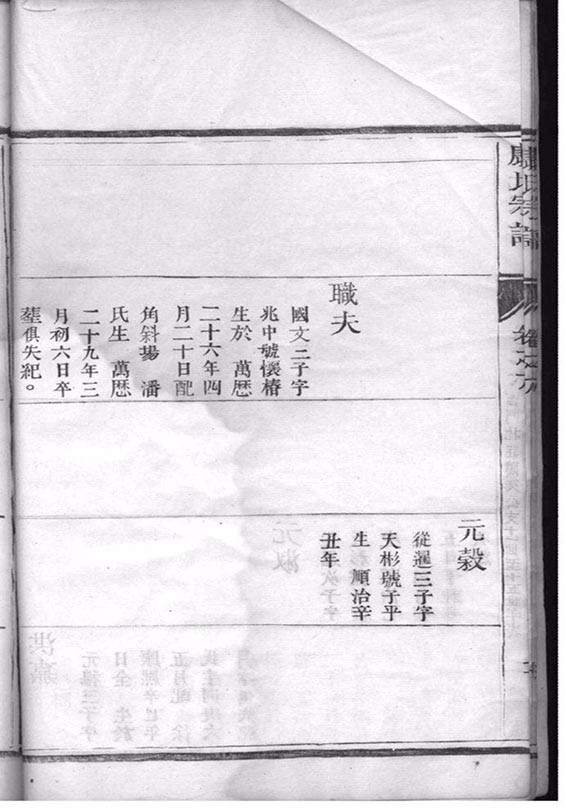 氏宗譜
卷之六
職夫
國文二子字
兆中號懷椿
生於 萬歷
二十六年四
月二十日配
角斜場 潘
氏生 萬歷
二十九年三
月初六日卒
塟俱失紀。
元穀
從暹三子字
天彬號子平
生 順治辛
丑年